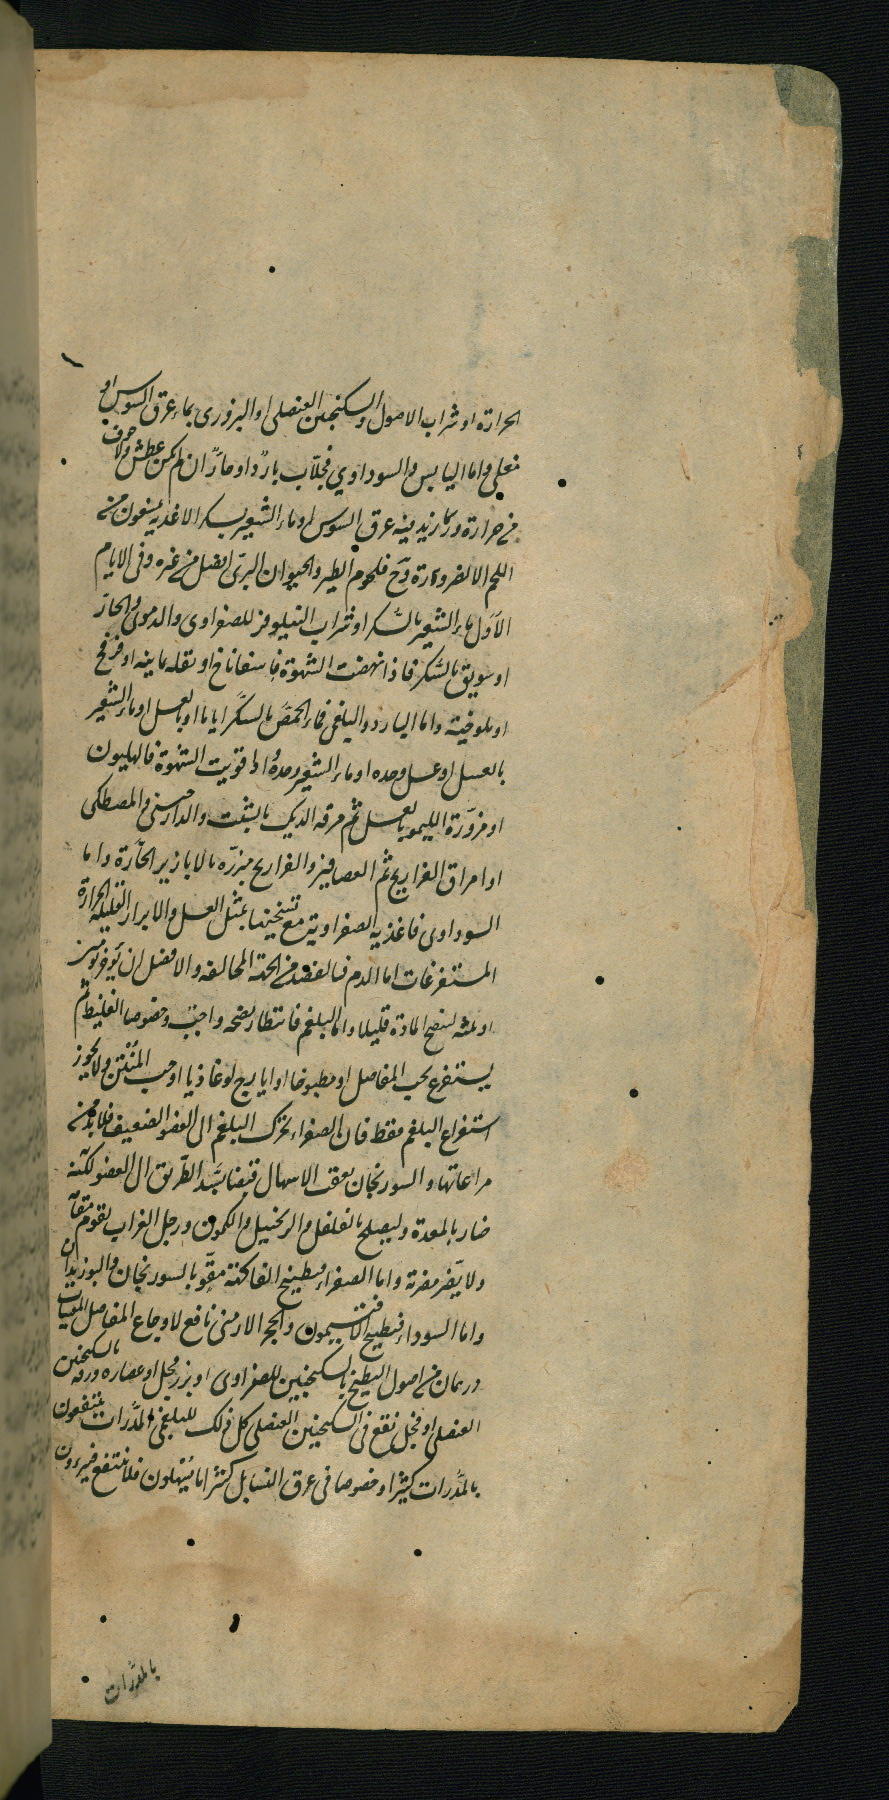 الحرارة او شراب الاصول والسكنجبين العنصلى او البزورى بماء عرق السوس او
مغلى واما اليابس والسوداوي فجلاب باردا او حارا ان لم يكن عطش ولا خوف
من حرارة عرق السوس او ماء الشعير بسكر الاغذية يمنعون من
اللحم الا لضرورة فلحوم الطير والحيوان البرى افضل من غيره وفى الايام
الأول ماء الشعير بالسكر او شراب النيلوفر للصفراوى والدموى والحار
او سويق بالسكر فاذا نهضت الشهوة فاسفاناخ او بقله يمانيه او فرفخ
او ملوخية واما البارد والبلغمى فماء الحمص بالسكر اياما او بالعسل او ماء الشعير
بالعسل او عسل وحده او ماء الشعير وحده اذا قويت الشهوة فالهليون
او مزورة الليمو بالعسل ثم مرقه الديك بالشبت والدارصينى والمصطكى
او امراق الفراريج ثم العصافير والفراريج مبزره بالابازير الحارة واما
السوداوى فاغذيه الصفراوية مع تسخينها بمثل العسل والابزار القليلة الحرارة
المستفرغات اما الدم فبالفصد من الجهة المخالفه والافضل ان يؤخر يومين
او ثلثه لنضج المادة قليلا واما البلغم فانتظار نضجه واجب وخصوصا الغليظ ثم
يستفرغ بحب المفاصل او مطبوخها او ايارج لوغاذيا او حب المنتن ولا يجوز
استفراغ البلغم فقط فان الصفراء تحرك البلغم الى العضو الضعيف فلا بد من
مراعاتها والسورنجان يعقب الاسهال قبضا يسد الطريق الى العضو لكنه
ضار بالمعدة وليصلح بالفلفل والزنجبيل والكمون ورجل الغراب يقوم مقامه
ولا يضر مضرته واما الصفراء فبطبيخ الفاكهة مقو بالسورنجان والبوزيدان
واما السوداء فبطبيخ الافتيمون والحجر الارمنى نافع لاوجاع المفاصل المقيات
درهمان من اصول البطيخ بالسكنجبين للصفراوى او بزر فجل او عصاره ورقه بالسكنجبين
العنصلى او فجل نقع فى السكنجبين العنصلى كل ذلك للبلغمى المدرات ينتفعون
بالمدرات كثيرا وخصوصا فى عرق النسا بل كثيرا ما يسهلون فلا ينتفع فيبرءون
بالمدرات